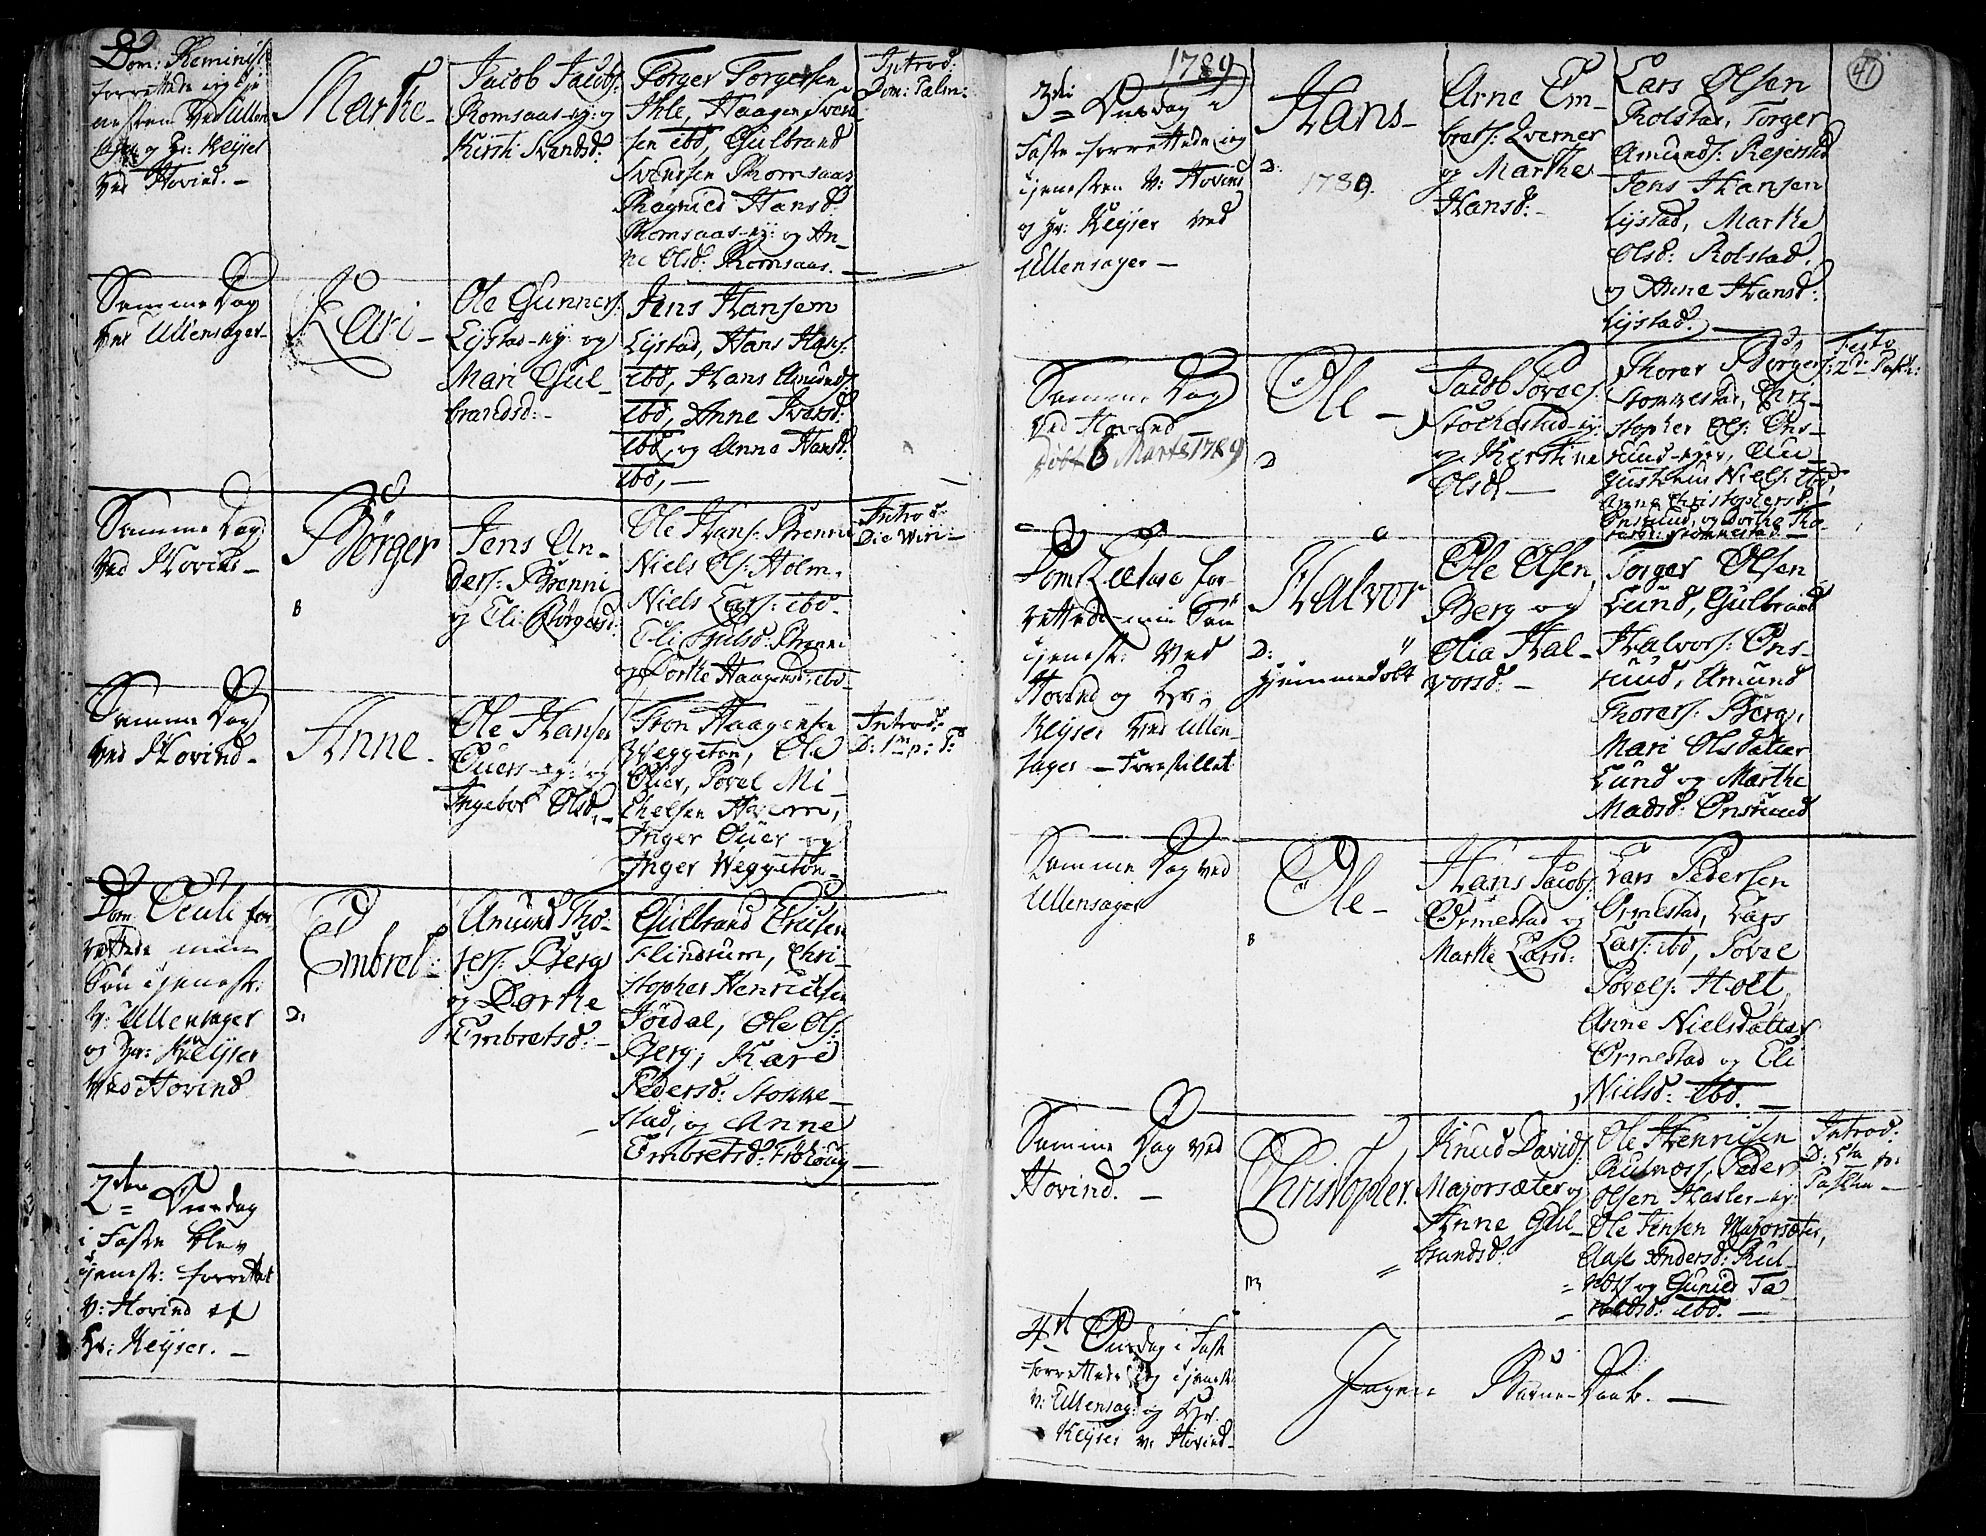 Dom: Reminisc
forrettede jeg tje
nesten ved Ullen
sager og Hr: Keyser
ved Hovind. –
Marthe –
Jacob Jacobs:
Romsaas-ey: og
Kirsti Svendsd:
Torger Torgersen
Ihle, Haagen Svend
sen ibd, Gulbrand
Svensen Romsaas
Ragnild Hansd:
Romsaas-ey: og An-
ne Olsd: Romsaas. –
Introd:
Dom: Palm:
Samme Dag
ved Ullensager –
Kari –
Ole Gunners:
Lystad-ey: og
Mari Gul-
brandsd: –
Jens Hansen
Lystad, Hans Hans:
ibd, Hans Amunds:
ibd, Anne Ivarsd:
ibd, og Anne Hansd:
ibd, –
Samme Dag
ved Hovind –
Børger
B
Jens An-
ders: Brenni
og Eli Børgersd:
Ole Hans: Brenni
Niels Ols: Holm,
Niels Lars: ibd.
Eli Hilsd: Brenni
og Dorthe Haagensd: ibd –
Introd:
Die Viri: –
Samme Dag
ved Hovind –
Anne –
Ole Hansen
Ouers-ey: og
Ingebor Olsd. –
Tron Haagensen
Weggeton, Ole
Ouer, Povel Mi-
chelsen Hovem,
Inger Ouer og
Inger Weggeton –
Introd:
D: 1me p: T:
Dom Oculi for-
rettede min
Søn tjenest:
V: Ullensager
og Hr: Keyser
ved Hovind
Embret –
D:
Amund Tho-
rers: Berg
og Dorthe
Embretsd: –
Gulbrand Trulsen
Flindrum, Chri-
stopher Henrichsen
Jødal, Ole Ols:
Berg, Kare
Pedersd: Stokke-
stad, og Anne
Embretsd: Frøhoug –
2den Onsdag
i Faste blev
tjenest: forrettet
V: Hovind af
Hr: Keyser. –
1789
47
3die Onsdag i
Faste forrettede jeg
tjenesten V: Hovind
og Hr: Keyser ved
Ullensager –
Hans –
D:
1789.
Arne Em-
brets: Qverner
og Marthe
Hansd: –
Lars Olsen
Rolstad, Torger
Amunds: Rejerstad
Jens Hansen
Lystad, Marthe
Olsd: Rolstad,
og Anne Hansd:
Lystad. –
Samme Dag
ved Hovind
Døbt 6 Marts 1789
Ole –
D
Jacob Povels:
Stochestad-ey:
og Kirstine
Olsd –
Thorer Børgers:
Stommestad, Chri-
stopher Ols: Ons-
rund-eyer, Au-
gustinus Niels: ibd,
Anne Christophersd:
Onsrund, og Dorthe Tho-
rersd: Stommestad –
Festo
2d: Pasch:
Dom: Lætare for-
rettede min Søn
tjenest: ved
Hovind og Hr:
Keyser ved Ullen-
sager – Forestillet
Halvor
D:
hjemmedøbt
Ole Olsen
Berg og
Olia Hal-
vorsd: –
Torger Olsen
Lund, Gulbrand
Halvors: Ons-
rund, Amund
Thorers: Berg,
Mari Olsdatter
Lund og Marthe
Madsd: Onsrund
Samme Dag ved
Ullensager
Ole –
B
Hans Jacobs:
Ormestad og
Marthe Larsd:
Lars Pedersen
Ormestad, Lars
Lars: ibd, Povel
Povels: Holt,
Anne Nielsdatter
Ormestad og Eli
Nielsd: ibd. –
Samme Dag ved
Hovind. –
Christopher.
M
Knud Davids:
Majorsæter og
Anne Gul-
brandsd:
Ole Henrichsen
Rulnæss, Peder
Olsen Hasler-ey:
Ole Jensen Majorsæter,
Aase Andersd: Rul-
næss og Gunild Ta-
raldsd: ibd. –
Introd:
D: 5ta p:
Pascha –
4de Onsdag i Faste
forrettede jeg tjeneste
V: Ullensag: og Hr.
Keyser V: Hovind –
Ingen Barne-Daab. –